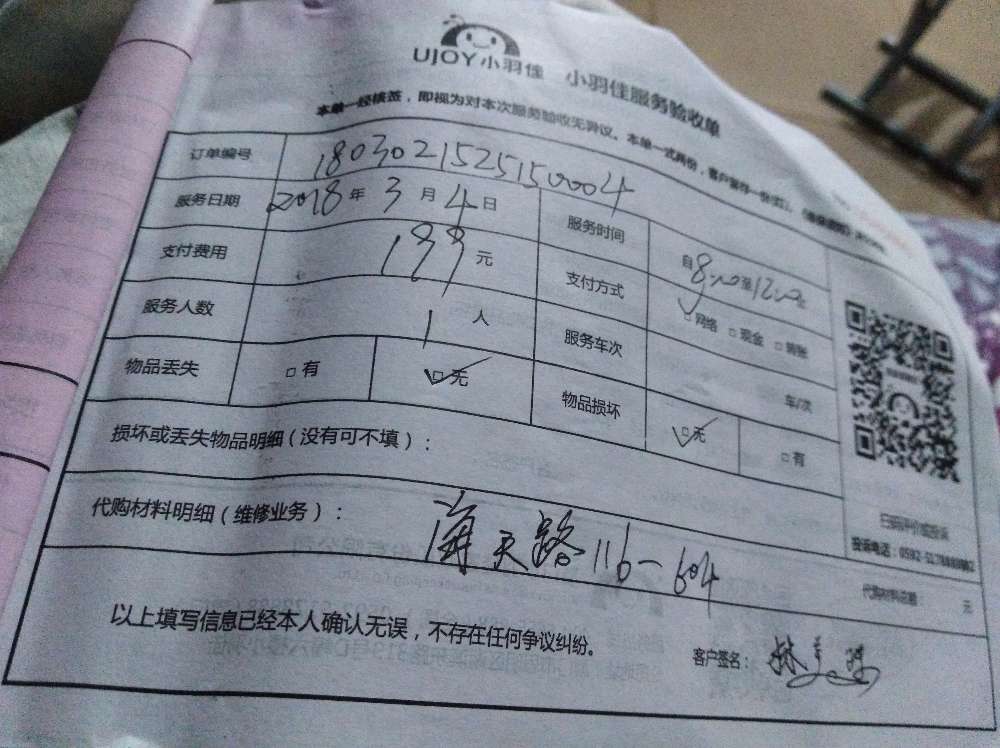 UJOY小羽佳 小羽佳服务验收单
本单一经核签，即视为对本次服务验收无异议。本单一式两份，客户留存一份
订单编号 1803021525150004
服务日期 2018年3月4日 服务时间 自8:00至12:00
支付费用 199元 支付方式 ☑网络 □现金 □转账
服务人数 1人 服务车次 车/次
物品丢失 □有 ☑无 物品损坏 ☑无 □有
损坏或丢失物品明细（没有可不填）：
扫码评价或投诉
代购材料明细（维修业务）： 海天路116-604
代购材料总额 元
以上填写信息已经本人确认无误，不存在任何争议纠纷。 客户签名：林美